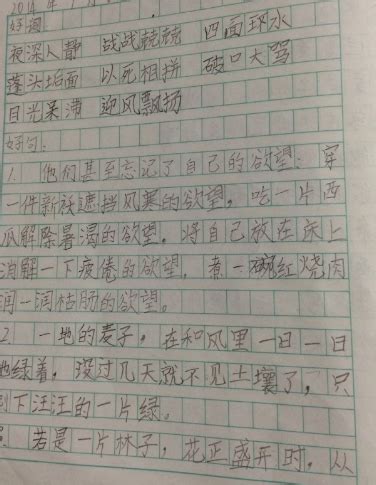 好词
夜深人静 战战兢兢 四面环水
蓬头垢面 以死相拼 破口大骂
目光呆滞 迎风飘扬
好句:
1. 他们甚至忘记了自己的欲望:穿
一件新袄遮挡风寒的欲望,吃一片西
瓜解除暑渴的欲望,将自己放在床上
消解一下疲倦的欲望,煮一碗红烧肉
润一润枯肠的欲望。
2 一地的麦子,在和风里一日一日
地绿着,没过几天就不见土壤了,只
剩下汪汪的一片绿。
若是一片林子,花正盛开时,从